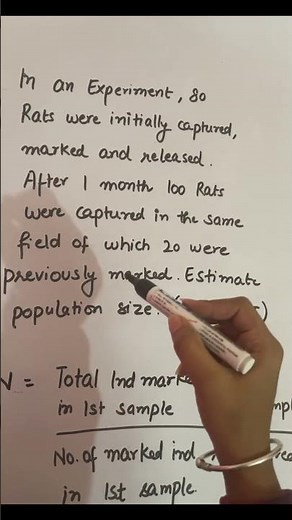 In an Experiment, 80
Rats were initially captured,
marked and released.
After 1 month 100 Rats
were captured in the same
field of which 20 were
previously marked. Estimate
population size.
N = Total Ind
in 1st sample
No. of marked ind
in 1st sample.